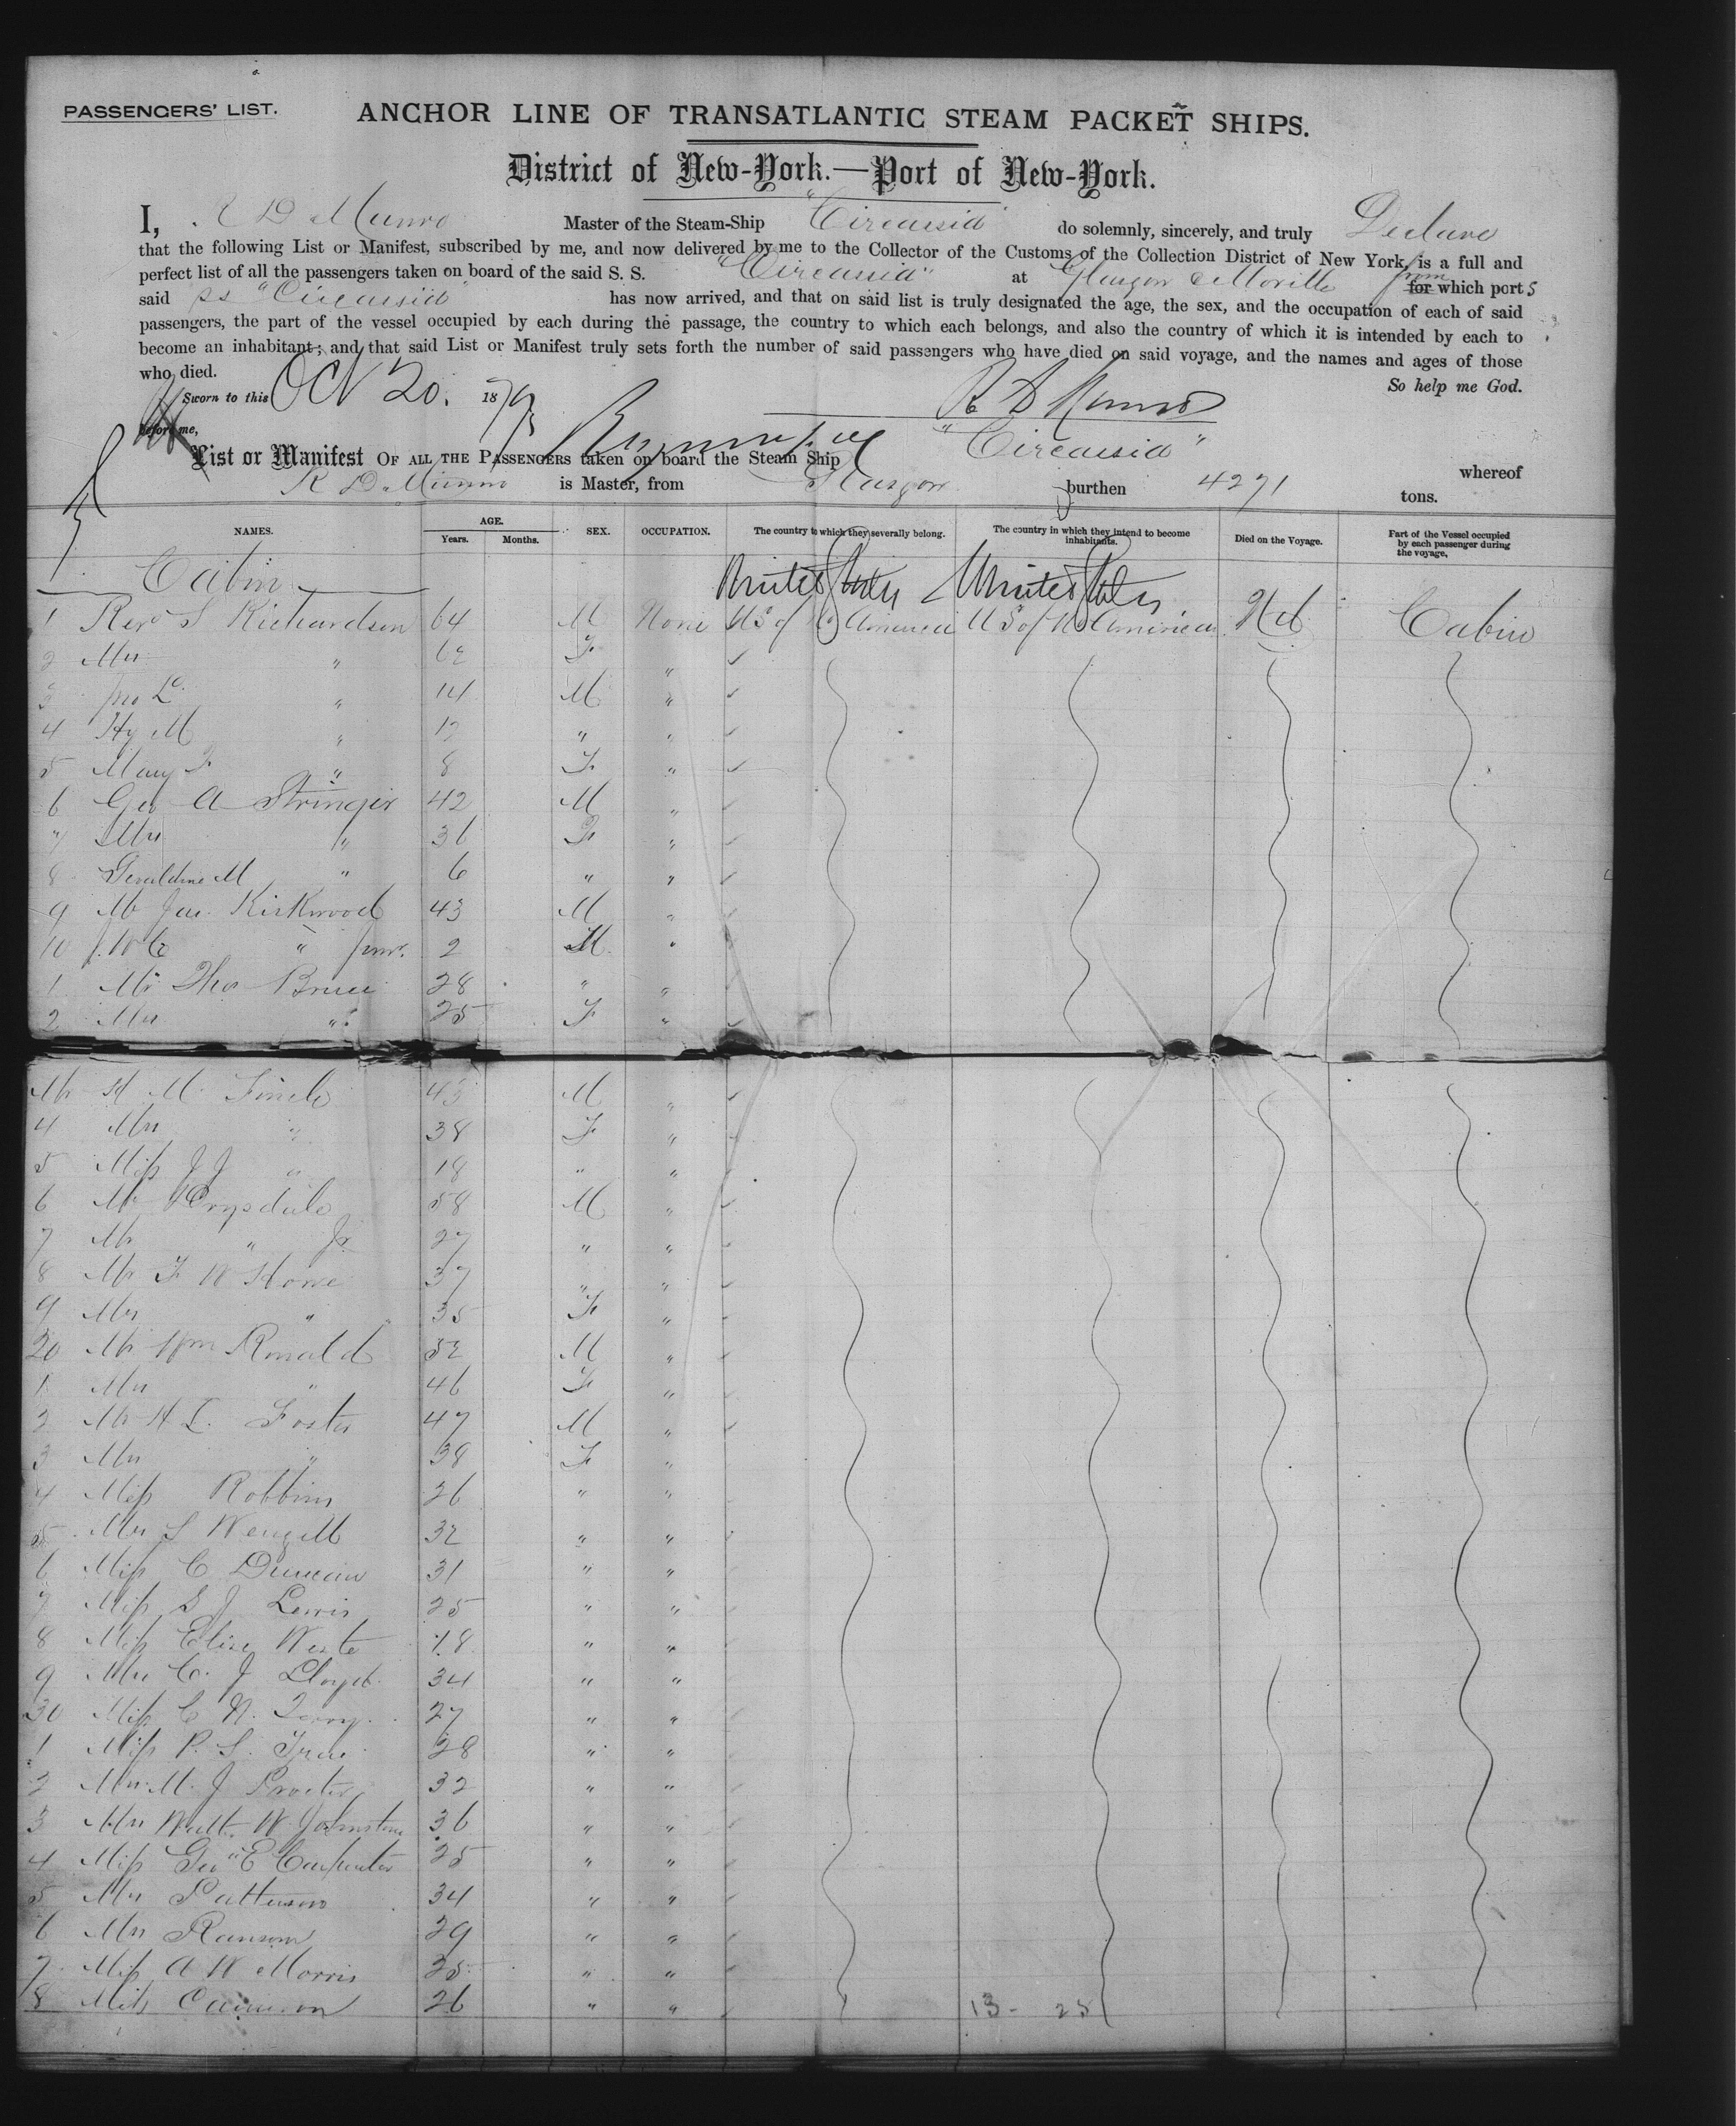 PASSENGERS' LIST.
ANCHOR LINE OF TRANSATLANTIC STEAM PACKET SHIPS.
District of New-York.—Port of New-York.
I, R D Munro Master of the Steam-Ship "Circassia" do solemnly, sincerely, and truly Declare
that the following List or Manifest, subscribed by me, and now delivered by me to the Collector of the Customs of the Collection District of New York, is a full and
perfect list of all the passengers taken on board of the said S. S. "Circassia" at Glasgow & Moville from for which ports
said ss "Circassia" has now arrived, and that on said list is truly designated the age, the sex, and the occupation of each of said
passengers, the part of the vessel occupied by each during the passage, the country to which each belongs, and also the country of which it is intended by each to
become an inhabitant; and that said List or Manifest truly sets forth the number of said passengers who have died on said voyage, and the names and ages of those
who died.
So help me God.
Sworn to this Oct 20. 1879
R D Munro
before me,
List or Manifest OF ALL THE PASSENGERS taken on board the Steam Ship "Circassia" whereof
R D Munro is Master, from Glasgow burthen 4271 tons.
NAMES. AGE. Years. Months. SEX. OCCUPATION. The country to which they severally belong. The country in which they intend to become inhabitants. Died on the Voyage. Part of the Vessel occupied by each passenger during the voyage.
Cabin United States United States
1 Revd S Richardson 64 M None US of No America US of No America Cabin
2 Mrs " 62 F "
3 Jno L " 14 M "
4 Hy M " 12 " "
5 Mary F " 8 F "
6 Geo A Stringer 42 M "
7 Mrs " 36 F "
8 Geraldine M " 6 " "
9 Mr Jas Kirkwood 43 M "
10 J. W C " junr. 2 M "
1 Mr Thos Bruce 28 " "
2 Mrs " 25 F "
Mr H M. Finch 43 M "
4 Mrs " 38 F "
5 Miss J J " 18 " "
6 Mr Drysdale 58 M "
7 Mr " Jr 27 " "
8 Mr F W Howe 37 " "
9 Mrs " 35 F "
20 Mr Wm Ronald 52 M "
1 Mrs " 46 F "
2 Mr H L. Foster 47 M "
3 Mrs " 38 F "
4 Miss Robbins 26 " "
5 Mrs S 32 " "
6 Miss C Duncan 31 " "
7 Miss S J Lewis 25 " "
8 Miss Elise 18 " "
9 Mrs C. J Lloyd 34 " "
30 Miss C N. 27 " "
1 Miss P. S. True 28 " "
2 Mrs M. J Proctor 32 " "
3 Mrs Walt. W Johnstone 36 " "
4 Miss Geo E Carpenter 25 " "
5 Mrs Patterson 34 " "
6 Mrs Ransom 29 " "
7 Miss A W Morris 25 " "
8 Miss Cameron 26 " "
13 - 25